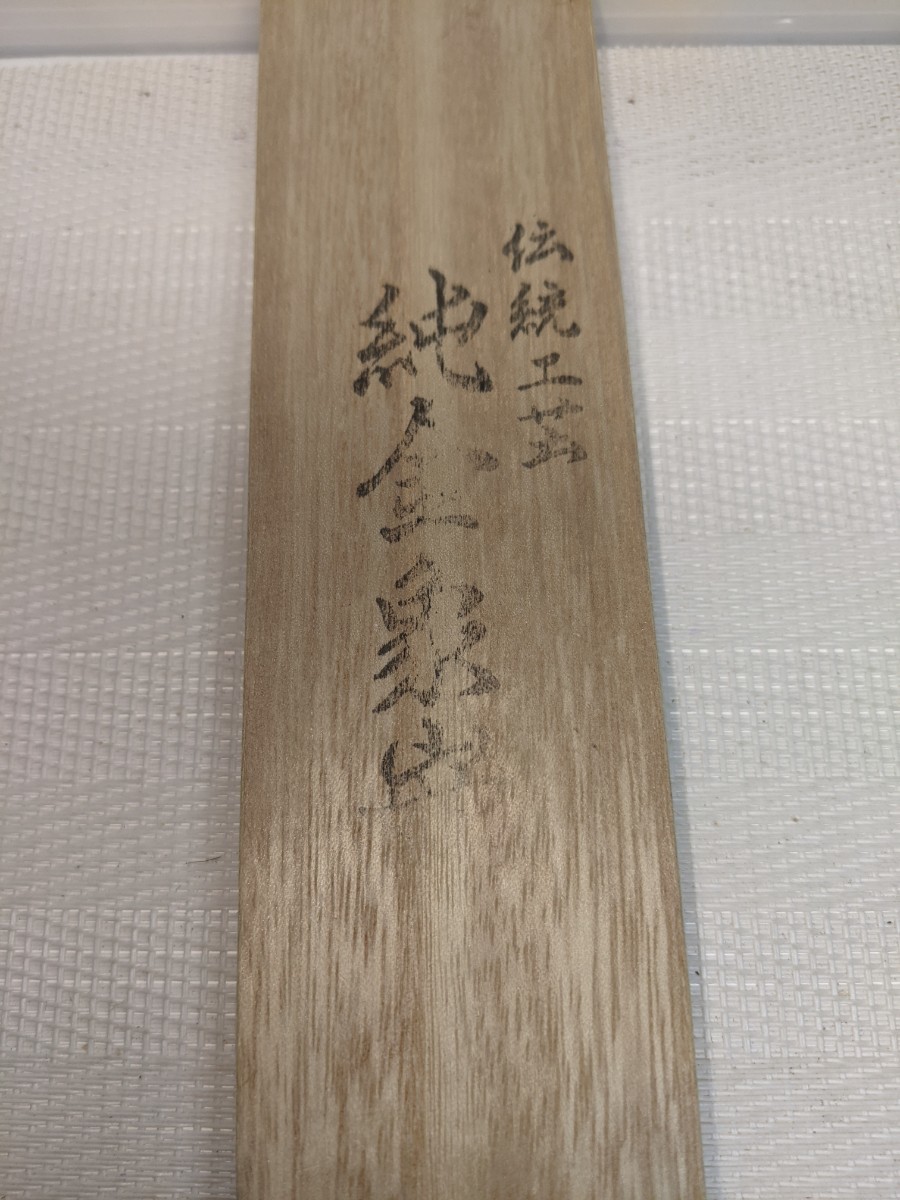 伝統工芸
純金象山